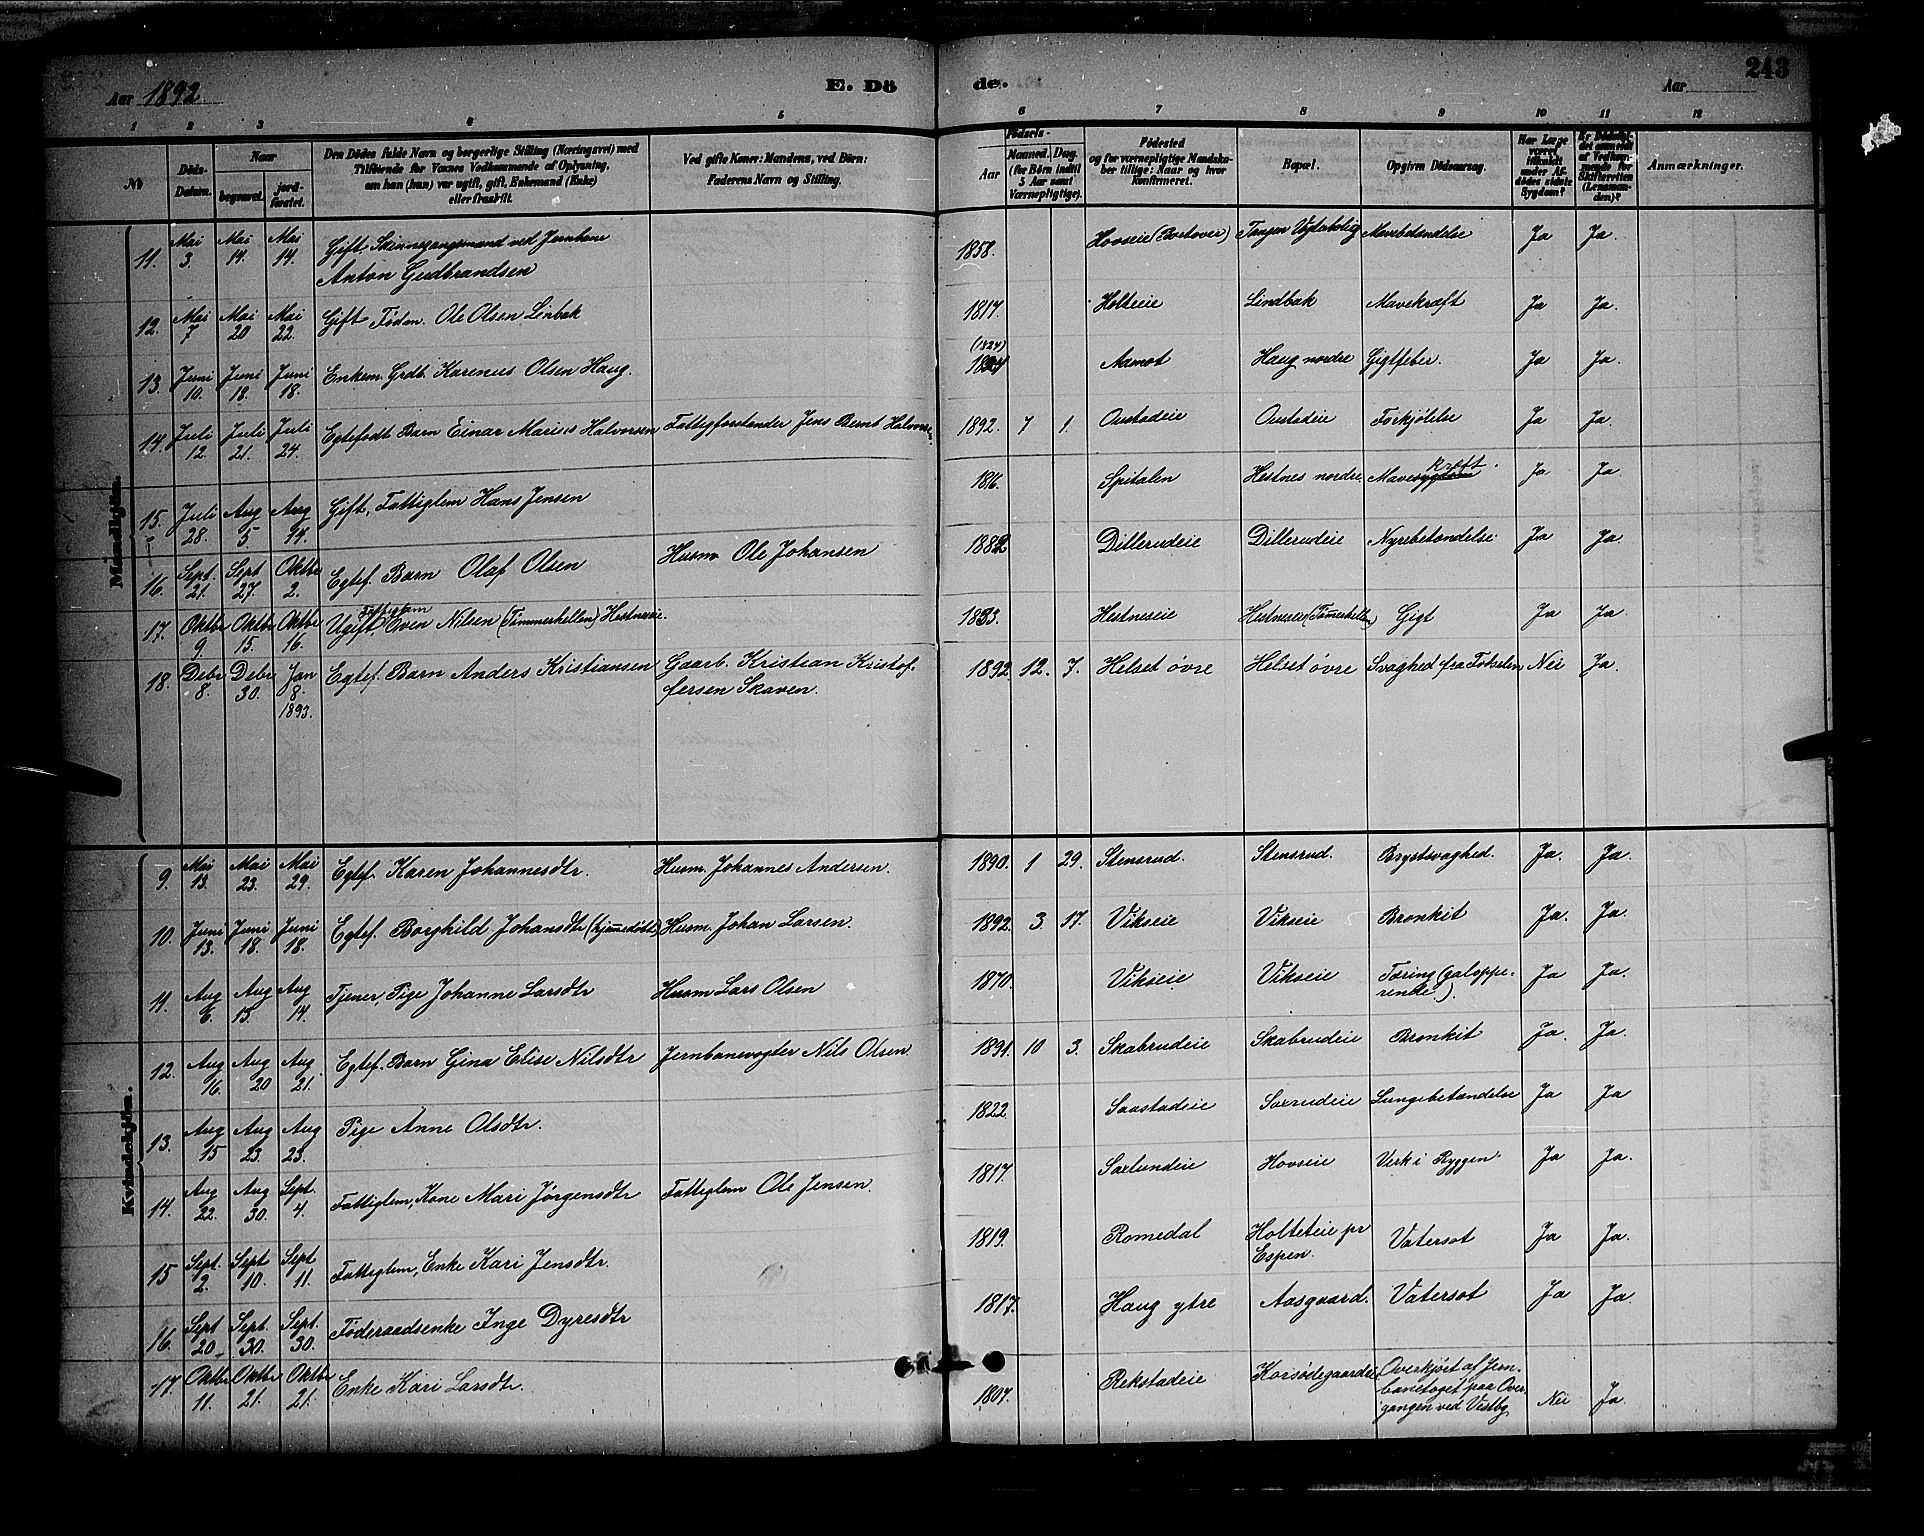 Aar 1892.
E. Dö
de.
Aar
243
1 2 3 4 5 6 7 8 9 10 11 12
No
Döds-Datum.
Naar
begravet.
jord-fæstet.
Den Dødes fulde Navn og borgerlige Stilling (Næringsvei) med
Tilföiende for Voxnes Vedkommende af Oplysning,
om han (hun) var ugift, gift, Enkemand (Enke)
eller fraskilt.
Ved gifte Koner: Mandens, ved Börn:
Faderens Navn og Stilling.
Födsels-
Aar
Maaned. Dag.
(for Børn indtil
5 Aar samt
Værnepligtige).
Födested
og for værnepligtige Mandskaber tillige: Naar og hvor
Konfirmeret.
Bopæl.
Opgiven Dödsaarsag.
Har Læge
været
tilkaldt
under Afdödes sidste
Sygdom?
Er Dödsfaldet anmeldt
af Vedkommende for
Skifteretten
(Lensmanden)?
Anmærkninger.
Mandkjön.
11. Mai 3. Mai 14. Mai 14. Gift. Skinnegangsmand ved Jernbane
Anton Gudbrandsen 1858. Hovseie Tangen Mavebetændelse Ja Ja.
12. Mai 7 Mai 20 Mai 22. Gift Föderm. Ole Olsen Linbak 1817. Holteie Lindbak Mavekræft Ja Ja.
13. Juni 10. Juni 18. Juni 18. Enkem. Grdb. Karenus Olsen Haug. (1824) Aamot Haug nordre Gigtfeber. Ja Ja.
14. Juli 12. Juli 21. Juli 24. Egtefødt Barn Einar Marius Halvorsen Fattigforstander Jens Bernt Halvorsen. 1892. 7 1. Oustadeie Oustadeie Forkjölelse Ja Ja.
15. Juli 28. Aug 5. Aug 14. Gift, Fattiglem Hans Jensen 1816. Spitalen Hestnes nordre Mavesygdom kræft. Ja Ja
16. Sept. 21. Sept 27. Oktbr 2. Egtef. Barn Olaf Olsen Husm Ole Johansen 1882 Dillerudeie Dillerudeie Nyrebetændelse. Ja Ja.
17. Oktbr 9. Oktbr 15. Oktbr 16. Ugift Fattiglem Even Nilsen (Tömmerhellen) Hestneseie. 1833. Hestneseie Hestneseie (Tömmerhellen) Gigt Ja Ja
18. Debr 8. Debr 30. Jan 8. 1893. Egtef. Barn Anders Kristiansen Gaarb. Kristian Kristoffersen Skaven. 1892 12. 7. Helset övre Helset övre Svaghed fra Födselen Nei Ja.
Kvindekjön.
9. Mai 13. Mai 23. Mai 29. Egtef. Karen Johannesdtr. Husm. Johannes Andersen. 1890. 1 29. Stensrud. Stensrud. Brystsvaghed. Ja. Ja.
10. Juni 13. Juni 18. Juni 18. Egtef. Borghild Johansdtr (hjemmedöbt) Husm. Johan Larsen. 1892. 3. 17. Vikseie Vikseie Bronkit Ja. Ja.
11. Aug 6. Aug 13. Aug 14. Tjener, Pige Johanne Larsdtr Husm Lars Olsen 1870. Vikseie Vikseie Tæring (galopperende). Ja Ja.
12. Aug 16. Aug 20 Aug 21. Egtef. Barn Gina Elise Nilsdtr Jernbanevogter Nils Olsen. 1891. 10 3. Skabrudeie Skabrudeie Bronkit Ja. Ja.
13. Aug 15 Aug 23. Aug 23. Pige Anne Olsdtr. 1822 Saastadeie Saxrudeie Lungebetændelse Ja Ja
14. Aug 22. Aug 30. Sept. 4. Fattiglem, Kone Mari Jörgensdtr Fattiglem Ole Jensen. 1817. Saxlundeie Hovseie Verk i Ryggen Ja Ja.
15 Sept. 2. Sept 10. Sept 11. Fattiglem, Enke Kari Jensdtr. 1819. Romedal Holteteie pr Espen. Vatersot Ja Ja.
16. Sept 20 Sept. 30. Sept. 30. Föderaadsenke Inge Dyresdtr 1817. Haug ytre Aasgaard. Vatersot Ja Ja.
17. Oktbr 11. Oktbr 21. Oktbr 21. Enke Kari Larsdtr. 1807. Rekstadeie Korsödegaardeie Overkjört af Jernbanetoget paa Overgangen ved Vestby Nei Ja.